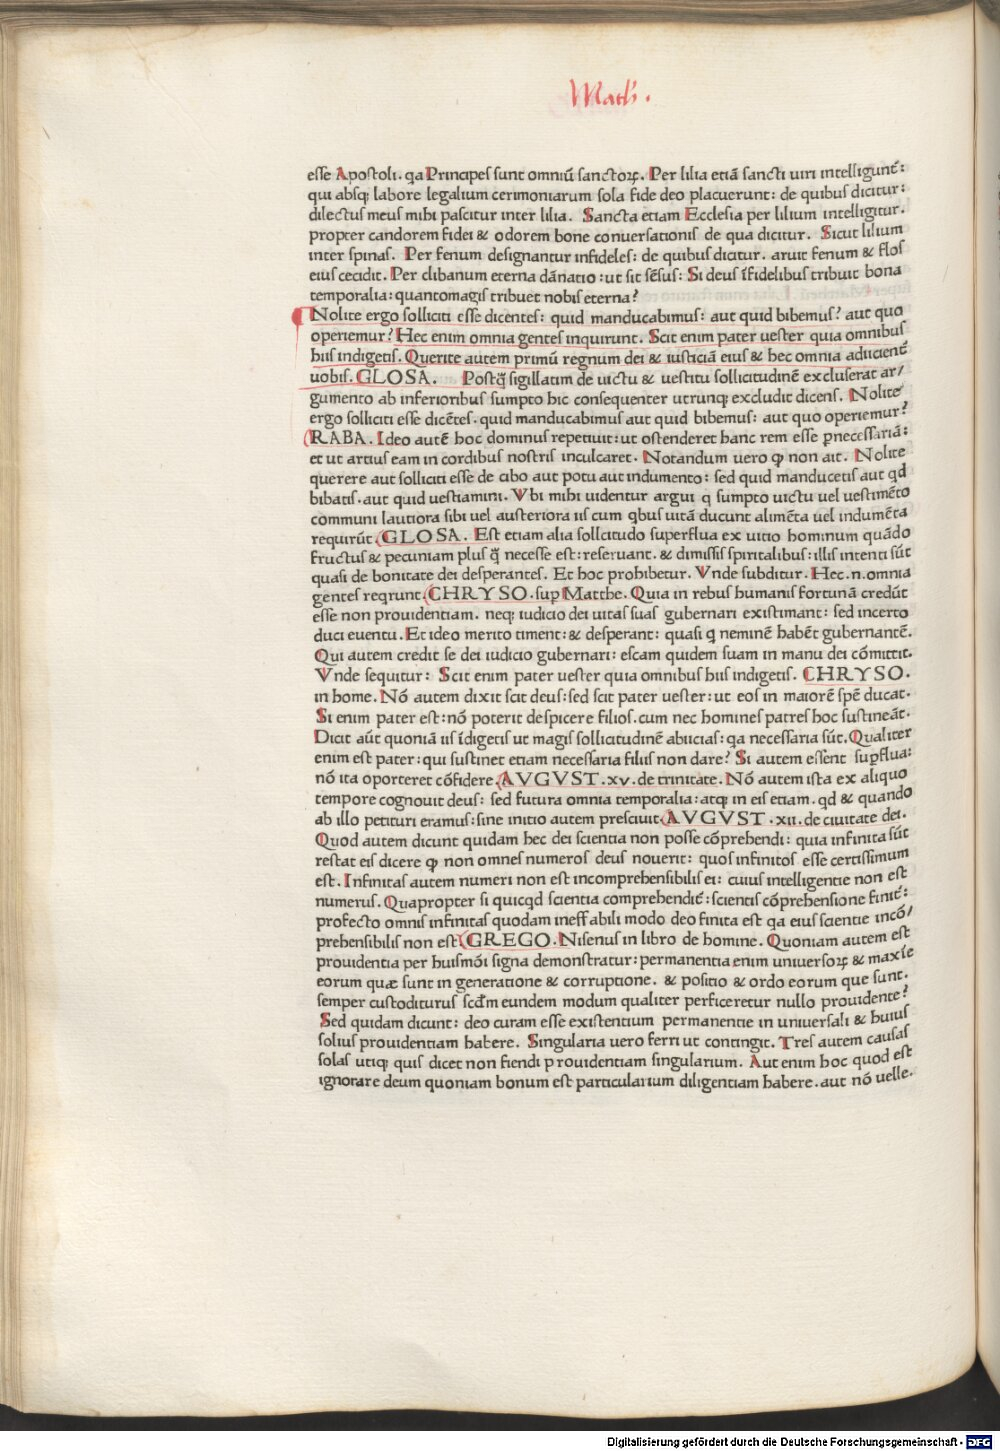 Math.
esse Apostoli. qa Principes sunt omniū sanctoꝝ. Per lilia etiā sancti uiri intelligunt̄:
qui absqꝫ labore legalium cerimoniarum sola fide deo placuerunt: de quibus dicitur:
dilectus meus mihi pascitur inter lilia. Sancta etiam Ecclesia per lilium intelligitur.
propter candorem fidei & odorem bone conuersationis de qua dicitur. Sicut lilium
inter spinas. Per fenum designantur infideles: de quibus dicitur. aruit fenum & flos
eius cecidit. Per clibanum eterna dānatio: ut sit sēsus: Si deus īfidelibus tribuit bona
temporalia: quantomagis tribuet nobis eterna?
Nolite ergo solliciti esse dicentes: quid manducabimus: aut quid bibemus? aut quo
operiemur? Hec enim omnia gentes inquirunt. Scit enim pater uester quia omnibus
hiis indigetis. Querite autem primū regnum dei & iusticiā eius & hec omnia adiicient̄
uobis. GLOSA. Postq̄ sigillatim de uictu & uestitu sollicitudinē excluserat ar/
gumento ab inferioribus sumpto hic consequenter utrunqꝫ excludit dicens. Nolite
ergo solliciti esse dicētes. quid manducabimus aut quid bibemus: aut quo operiemur?
RABA. Ideo autē hoc dominus repetiuit: ut ostenderet hanc rem esse ꝑnecessariā:
et ut artius eam in cordibus nostris inculcaret. Notandum uero ꝙ non ait. Nolite
querere aut solliciti esse de cibo aut potu aut indumento: sed quid manducetis aut qd
bibatis. aut quid uestiamini. Vbi mihi uidentur argui q sumpto uictu uel uestimēto
communi lautiora sibi uel austeriora iis cum qbus uitā ducunt alimēta uel indumēta
requirūt. GLOSA. Est etiam alia sollicitudo superflua ex uitio hominum quādo
fructus & pecuniam plus q̄ necesse est: reseruant. & dimissis spiritalibus: illis intenti sūt
quasi de bonitate dei desperantes. Et hoc prohibetur. Vnde subditur. Hec.n.omnia
gentes reqrunt. CHRYSO. suꝑ Matthe. Quia in rebus humanis fortunā credūt
esse non prouidentiam. neqꝫ iudicio dei uitas suas gubernari existimant: sed incerto
duci euentu. Et ideo merito timent: & desperant: quasi q neminē habēt gubernantē.
Qui autem credit se dei iudicio gubernari: escam quidem suam in manu dei cōmittit.
Vnde sequitur: Scit enim pater uester quia omnibus hiis indigetis. CHRYSO.
in home. Nō autem dixit scit deus: sed scit pater uester: ut eos in maiorē spē ducat.
Si enim pater est: nō poterit despicere filios. cum nec homines patres hoc sustineāt.
Dicit aūt quoniā iis īdigetis ut magis sollicitudinē abiicias: qa necessaria sūt. Qualiter
enim est pater: qui sustinet etiam necessaria filiis non dare? Si autem essent suꝑflua:
nō ita oporteret cōfidere. AVGVST.xv. de trinitate. Nō autem ista ex aliquo
tempore cognouit deus: sed futura omnia temporalia: atqꝫ in eis etiam. qd & quando
ab illo petituri eramus: sine initio autem presciuit. AVGVST.xii. de ciuitate dei.
Quod autem dicunt quidam hec dei scientia non posse cōprehendi: quia infinita sūt
restat eis dicere ꝙ non omnes numeros deus nouerit: quos infinitos esse certissimum
est. Infinitas autem numeri non est incomprehensibilis ei: cuius intelligentie non est
numerus. Quapropter si quicqd scientia comprehendit̄: scientis cōprehensione finit̄:
profecto omnis infinitas quodam ineffabili modo deo finita est qa eius scientie incō/
prehensibilis non est. GREGO. Nisenus in libro de homine. Quoniam autem est
prouidentia per huismōi signa demonstratur: permanentia enim uniuersoꝝ & maxīe
eorum quæ sunt in generatione & corruptione. & positio & ordo eorum que sunt.
semper custoditurus scd̄m eundem modum qualiter perficeretur nullo prouidente?
Sed quidam dicunt: deo curam esse existentium permanentie in uniuersali & huius
solius prouidentiam habere. Singularia uero ferri ut contingit. Tres autem causas
solas utiqꝫ quis dicet non fiendi prouidentiam singularium. Aut enim hoc quod est
ignorare deum quoniam bonum est particularium diligentiam habere. aut nō uelle.
Digitalisierung gefördert durch die Deutsche Forschungsgemeinschaft - DFG